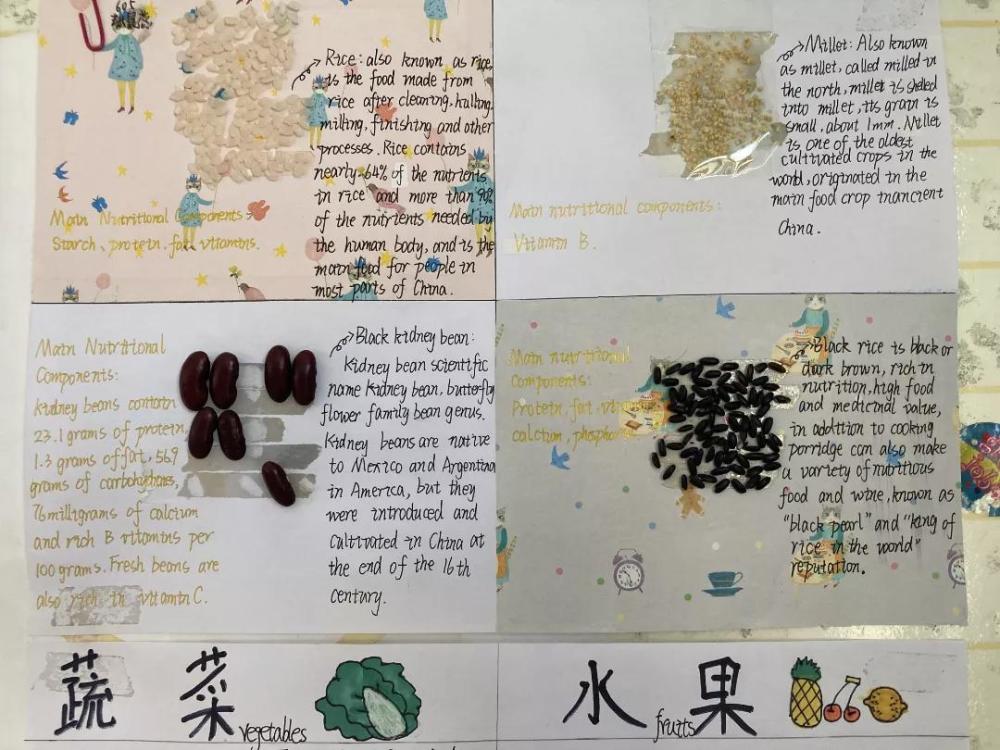 Rice: also known as rice,
is the food made from
rice after cleaning, hulling,
milling, finishing and other
processes. Rice contains
nearly 64% of the nutrients
in rice and more than 90%
of the nutrients needed by
the human body, and is the
main food for people in
most parts of China.
Main Nutritional Components:
Starch, protein, fat, vitamins.
Millet: Also known
as millet, called milled in
the north, millet is shelled
into millet, its grain is
small, about 1mm. Millet
is one of the oldest
cultivated crops in the
world, originated in the
main food crop inancient
China.
Main nutritional components:
Vitamin B.
Main Nutritional
Components:
kidney beans contain
23.1 grams of protein,
1.3 grams of fat, 56.9
grams of carbohydrates,
76 milligrams of calcium
and rich B vitamins per
100 grams. Fresh beans are
also rich in vitamin C.
Black kidney bean:
Kidney bean scientific
name kidney bean, butterfly
flower family bean genus.
Kidney beans are native
to Mexico and Argentina
in America, but they
were introduced and
cultivated in China at
the end of the 16th
century.
Main nutritional
Components:
Protein, fat,
calcium,
Black rice is black or
dark brown, rich in
nutrition, high food
and medicinal value,
in addition to cooking
porridge can also make
a variety of nutritious
food and wine, known as
"black pearl" and "king of
rice in the world"
reputation.
蔬 菜 vegetables
水 fruits 果